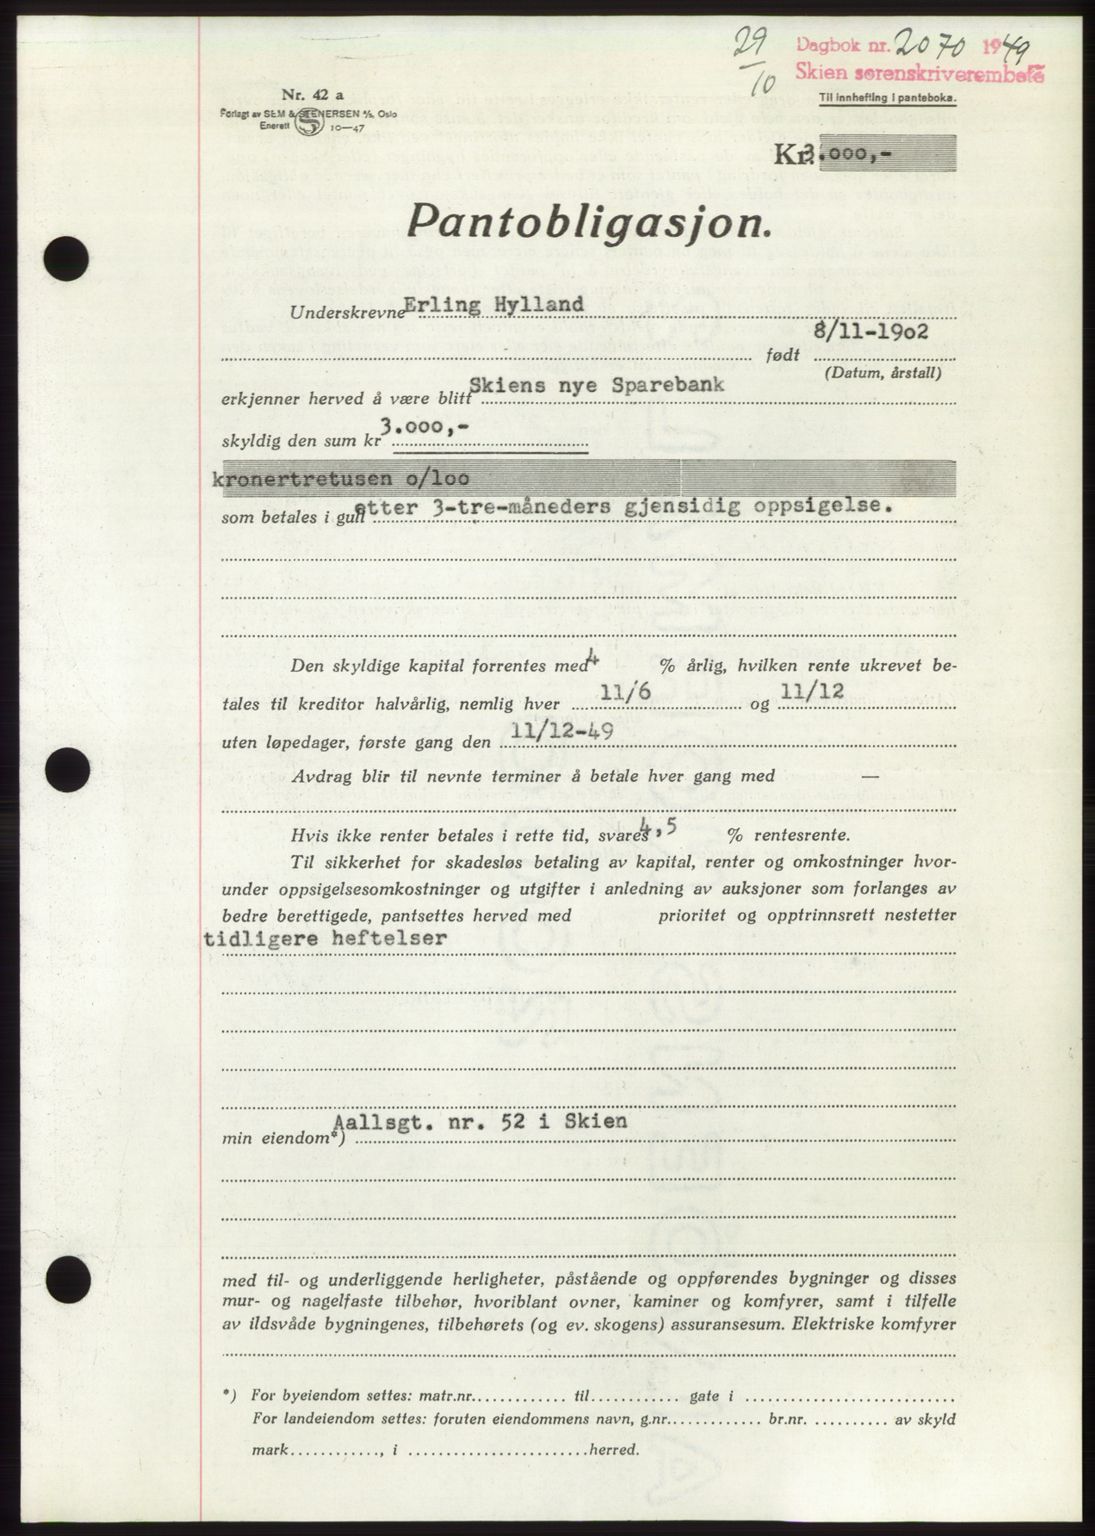 29/10 Dagbok nr. 2070 1949
Skien sorenskriverembete
Til innhefting i panteboka.
Nr. 42 a
Forlagt av SEM & STENERSEN A/S, Oslo
Enerett 10—47
Kr. 3.000,-
Pantobligasjon.
Underskrevne Erling Hylland
født 8/11-1902
(Datum, årstall)
erkjenner herved å være blitt Skiens nye Sparebank
skyldig den sum kr 3.000,-
kronertretusen o/loo
som betales i gull etter 3-tre-måneders gjensidig oppsigelse.
Den skyldige kapital forrentes med 4 % årlig, hvilken rente ukrevet be-
tales til kreditor halvårlig, nemlig hver 11/6 og 11/12
uten løpedager, første gang den 11/12-49
Avdrag blir til nevnte terminer å betale hver gang med —
Hvis ikke renter betales i rette tid, svares 4,5 % rentesrente.
Til sikkerhet for skadesløs betaling av kapital, renter og omkostninger hvor-
under oppsigelsesomkostninger og utgifter i anledning av auksjoner som forlanges av
bedre berettigede, pantsettes herved med prioritet og opptrinnsrett nestetter
tidligere heftelser
min eiendom*) Aallsgt. nr. 52 i Skien
med til- og underliggende herligheter, påstående og oppførendes bygninger og disses
mur- og nagelfaste tilbehør, hvoriblant ovner, kaminer og komfyrer, samt i tilfelle
av ildsvåde bygningenes, tilbehørets (og ev. skogens) assuransesum. Elektriske komfyrer
*) For byeiendom settes: matr.nr. til gate i
For landeiendom settes: foruten eiendommens navn, g.nr. br.nr. av skyld
mark , i herred.